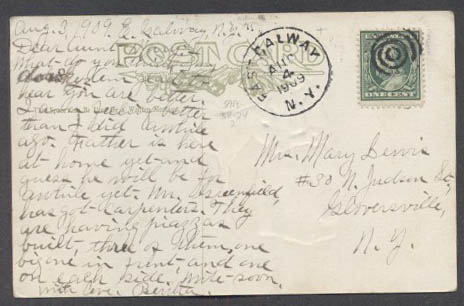 Aug. 3, 1909. E. Galway, N.Y.
Dear Aunt
POST CARD
What do you
hear you are better.
I feel better
than I did awhile
ago. Father is here
at home yet and
guess he will be for
awhile yet. Mr. Greenfield,
has got carpenters. They
are having piazzas
built, three of them, one
big one in front, and one
on each side. Write soon.
with love. Bertha
EAST GALWAY
AUG
4
1909
N.Y.
ONE CENT
Mrs. Mary Lewis
#30 N. Judson St.,
Gloversville,
N. Y.